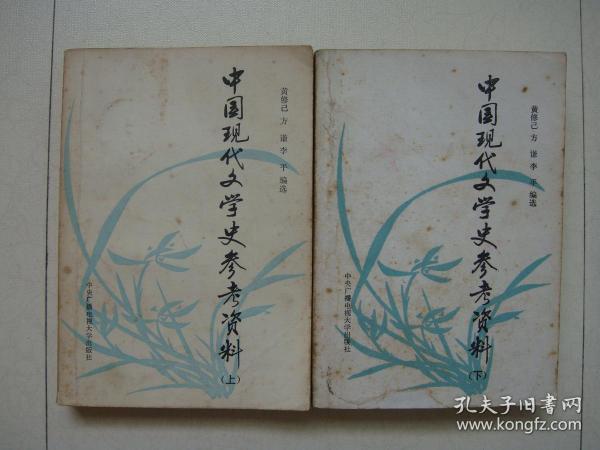 中国现代文学史参考资料
(上)
黄修己 方谦 李平 编选
中央广播电视大学出版社
中国现代文学史参考资料
(下)
黄修己 方谦 李平 编选
中央广播电视大学出版社
孔夫子旧书网
www.kongfz.com